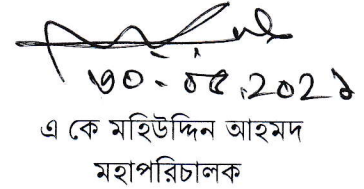 ৩০-০৫.২০২১
এ কে মহিউদ্দিন আহমদ
মহাপরিচালক